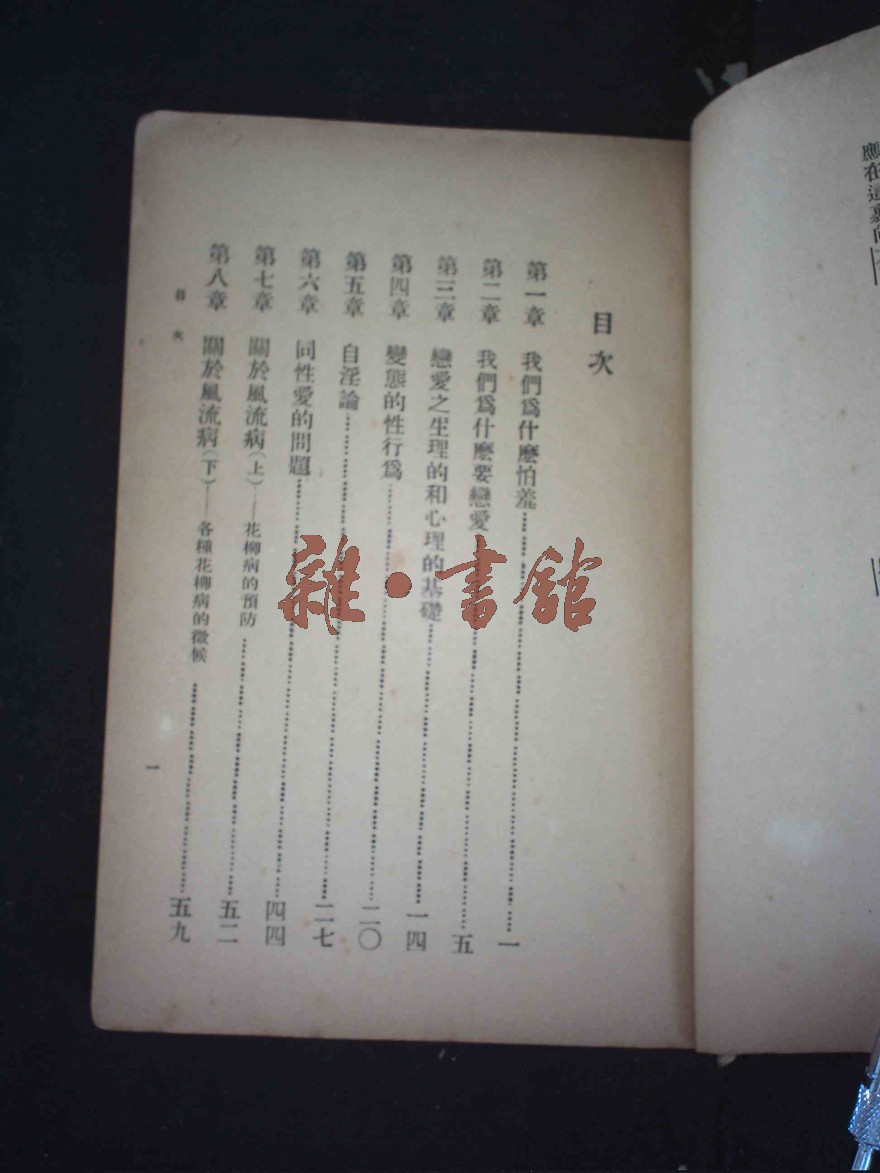 目次
第一章 我們爲什麼怕羞 一
第二章 我們爲什麼要戀愛 五
第三章 戀愛之生理的和心理的基礎 一四
第四章 變態的性行爲 二〇
第五章 自淫論 二七
第六章 同性愛的問題 四四
第七章 關於風流病(上)——花柳病的預防 五二
第八章 關於風流病(下)——各種花柳病的徵候 五九
目次
一
雜·書館